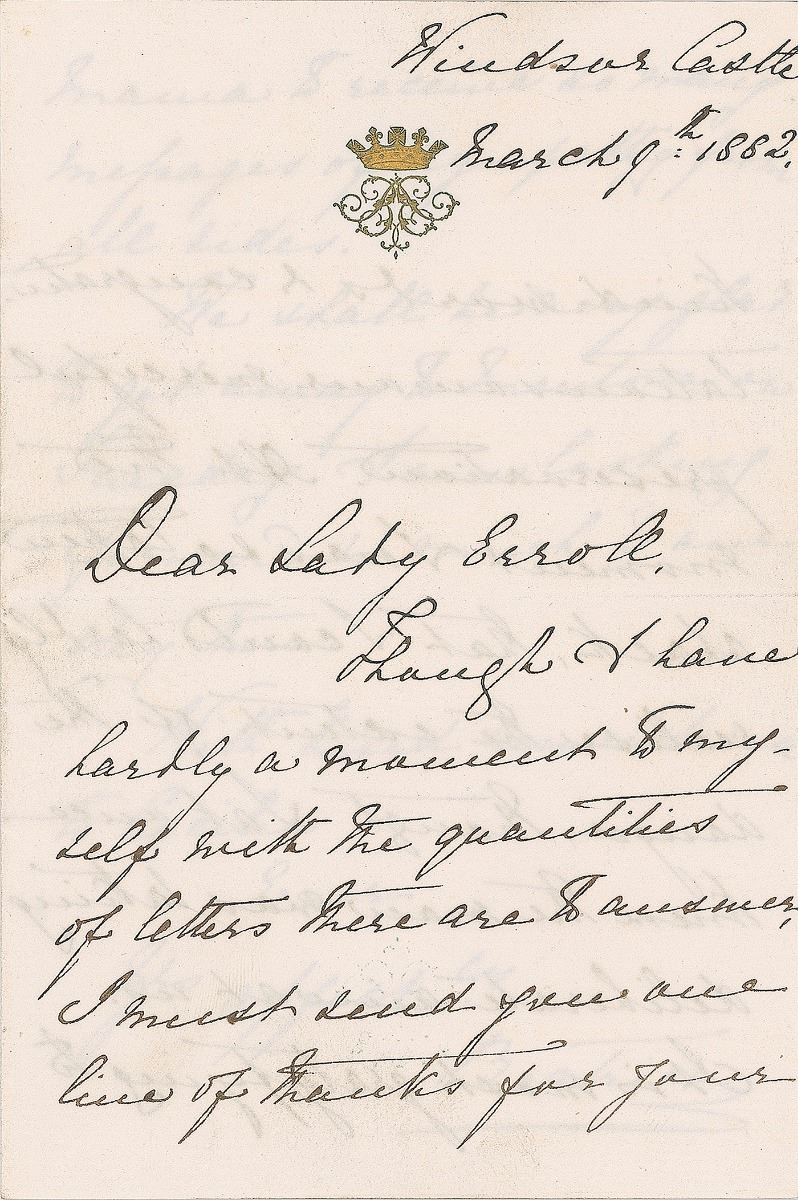 Windsor Castle
March 9th: 1882.
Dear Lady Erroll.
Though I have
hardly a moment to my-
self with the quantities
of letters there are to answer,
I must send you one
line of thanks for your